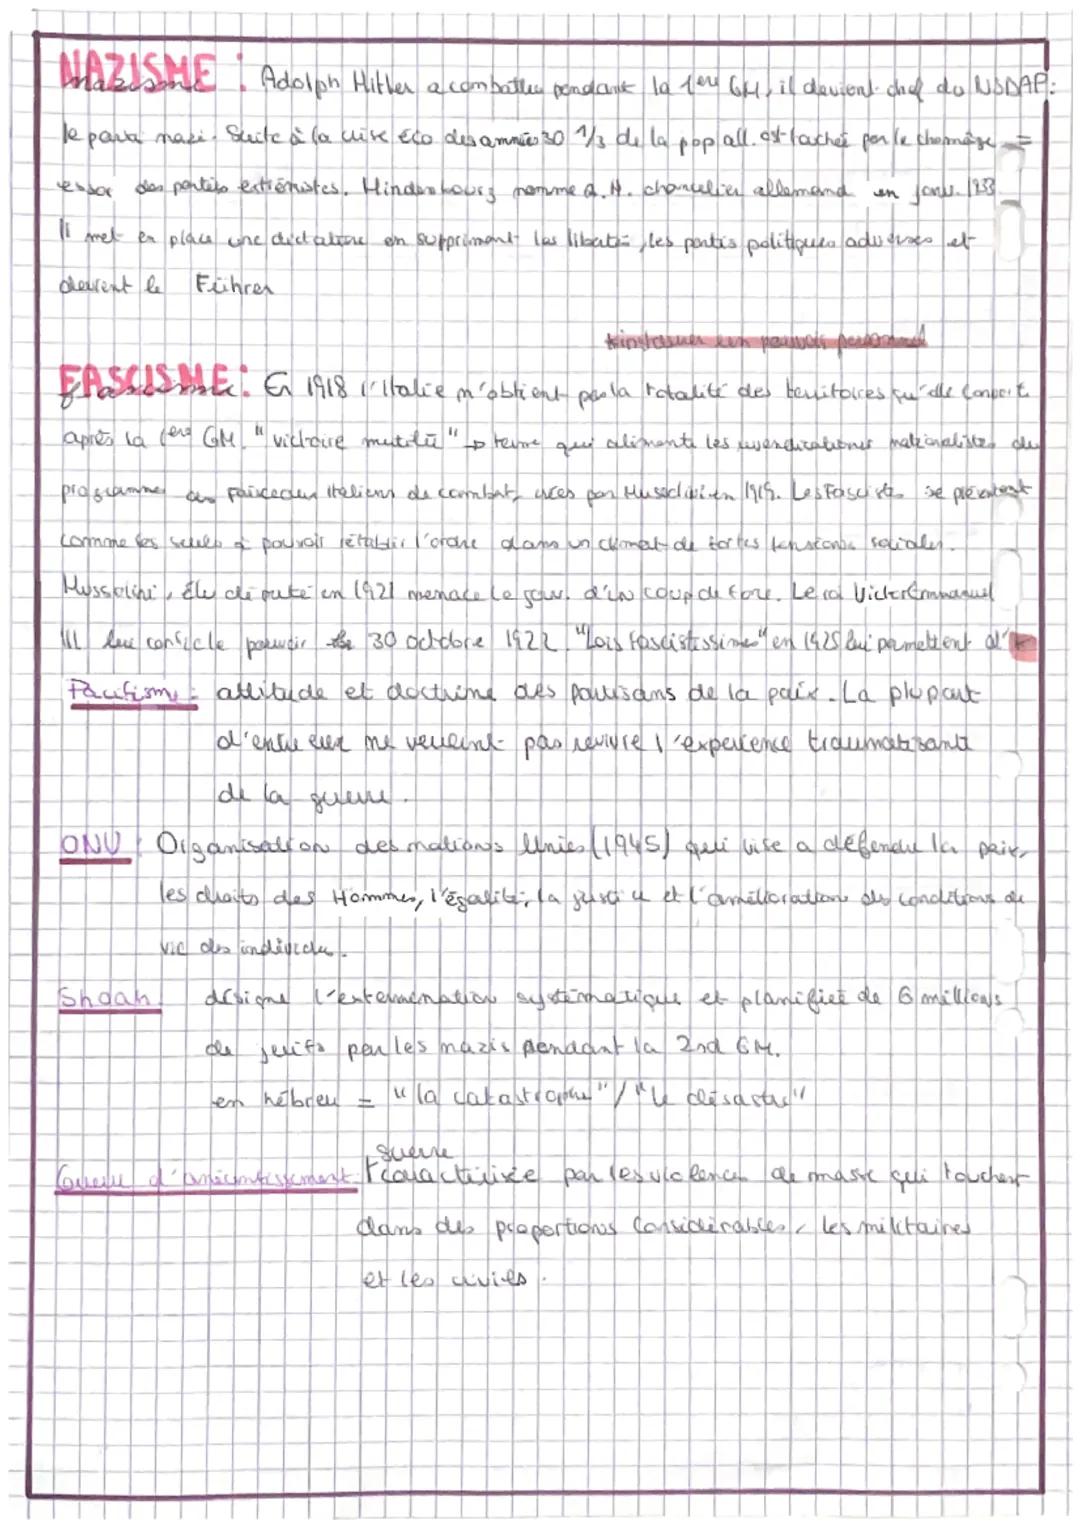 NAZISME : Adolph Hitler a combattu pendant la 1ère GM, il devient chef du NSDAP:
le parti nazi. Suite à la crise éco des années 30 1/3 de la pop all. est touché par le chomâge =
essor des partis extrémistes. Hindenbourg nomme A.H. chancelier allemand en janv. 1933
Il met en place une dictature en supprimant les libertés, les partis politiques adverses et
devient le Führer
instaurer un pouvoir personnel
FASCISME : En 1918 l'Italie n'obtient pas la totalité des territoires qu'elle convoit
après la 1ère GM. "victoire mutilée" → terme qui alimente les revendications nationalistes du
programme des faisceaux italiens de combat, crées par Mussolini en 1919. Les Fascistes se présentent
comme les seuls à pouvoir rétablir l'ordre dans un climat de fortes tensions sociales.
Mussolini, élu député en 1921 menace le gouv. d'un coup de force. Le roi Victor Emmanuel
III lui confie le pouvoir le 30 octobre 1922. "Lois fascistissimes" en 1925 lui permettent d'
Pacifisme : attitude et doctrine des partisans de la paix. La plupart
d'entre eux ne veulent pas revivre l'experience traumatisante
de la guerre.
ONU : Organisation des nations Unies (1945) qui vise a défendre la paix,
les droits des Hommes, l'égalité, la justice et l'amélioration des conditions de
vie des individu.
Shoah : désigne l'extermination systématique et planifiée de 6 millions
de juifs par les nazis pendant la 2nd GM.
en hébreu = "la catastrophe" / "le désastre"
guerre
Guerre d'anéantissement : caractérisée par les violences de masse qui touchent
dans des proportions considérables, les militaires
et les civils.